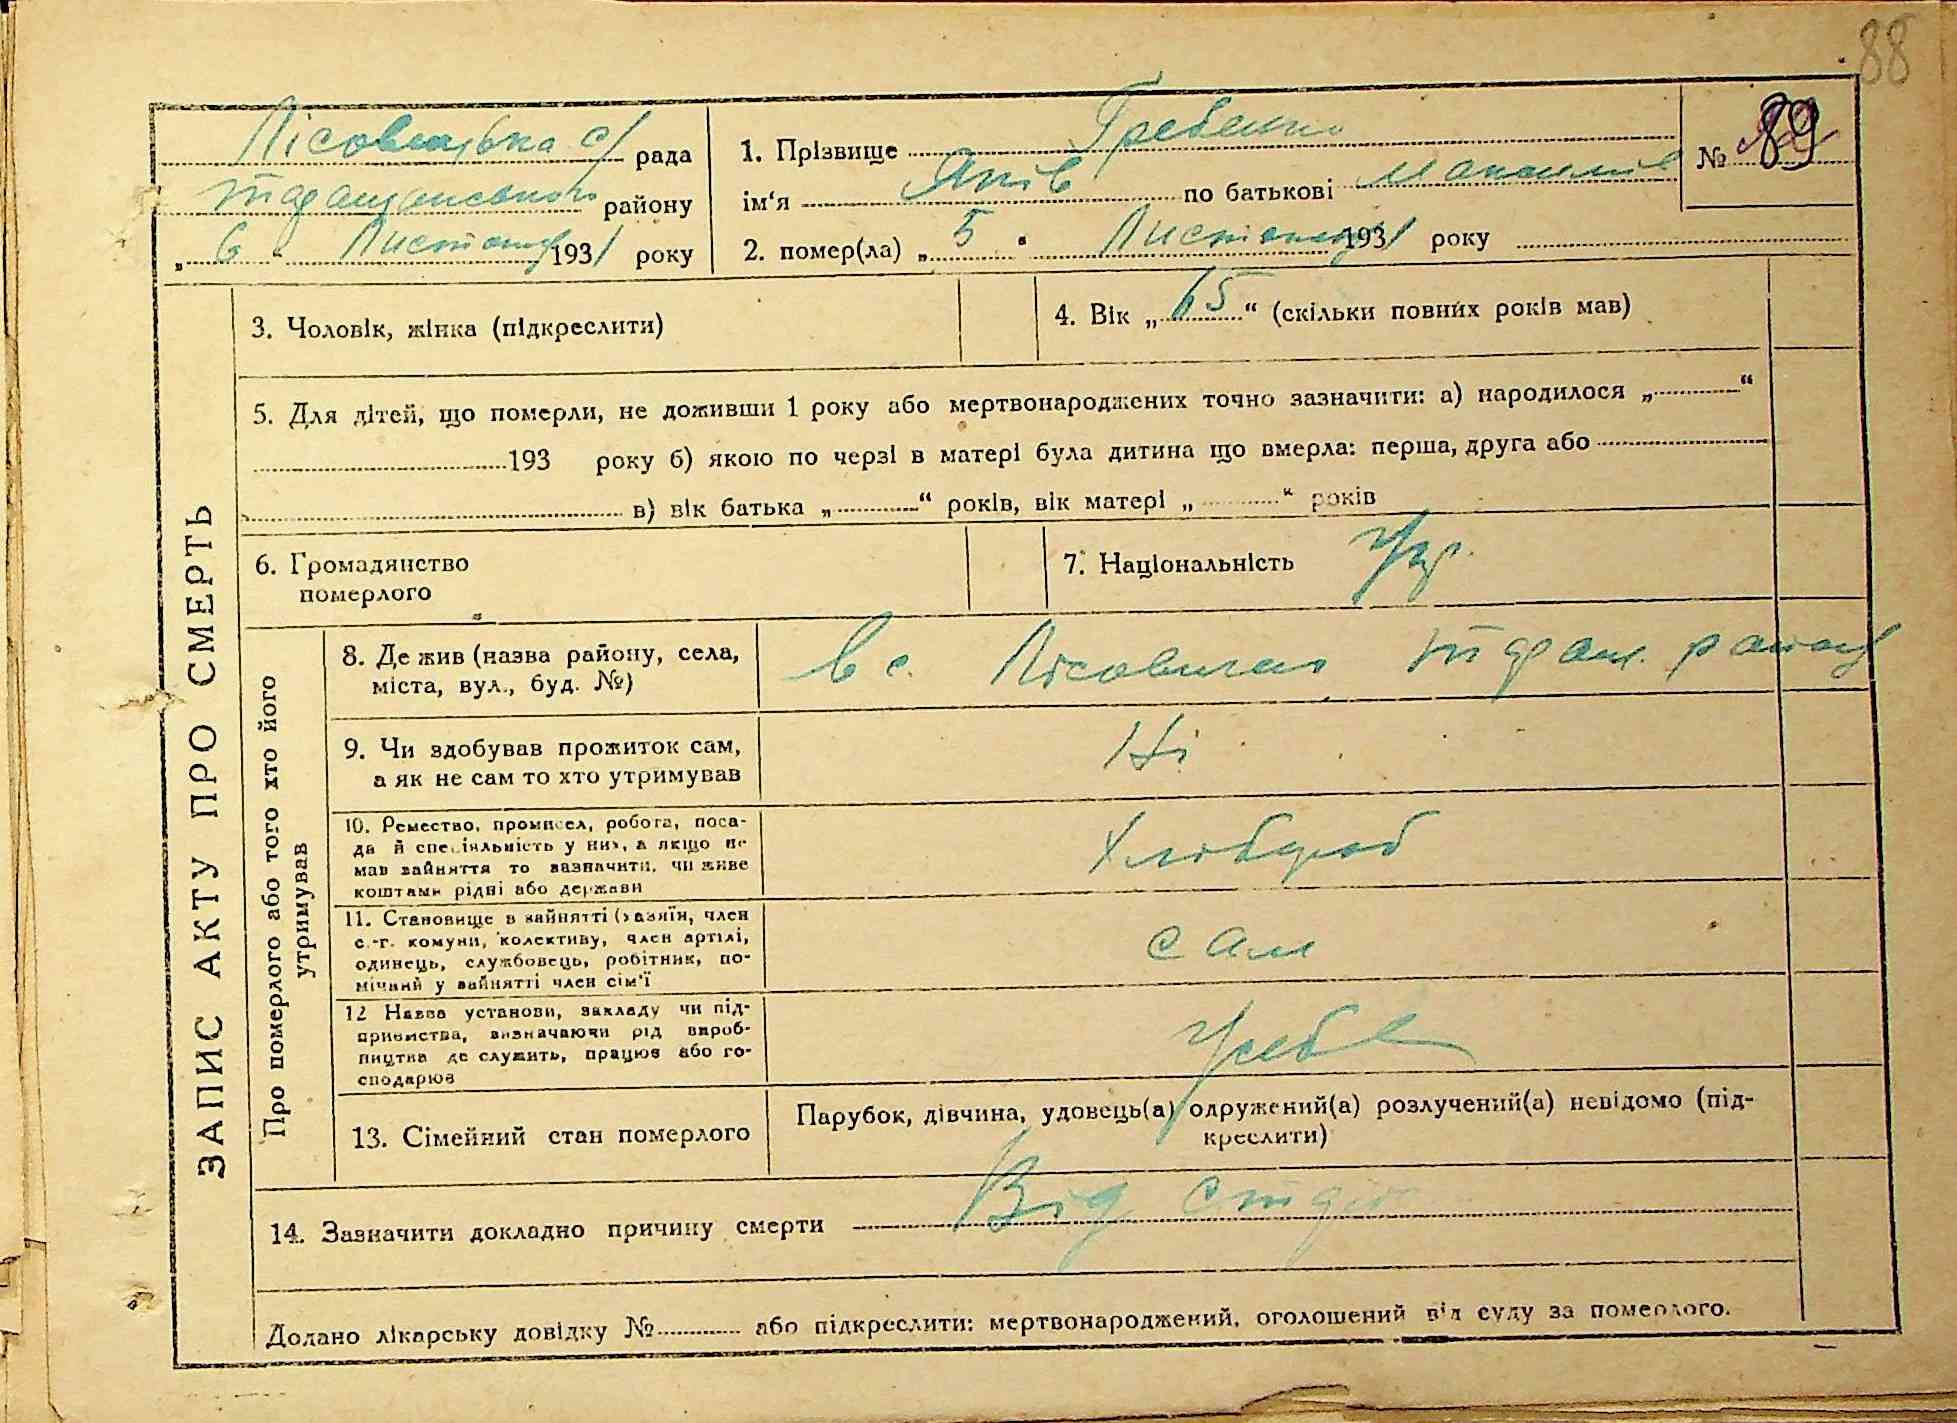 88
Лісовицька с/ рада
Таращанського району
„6“ Листопаду 1931 року
1. Прізвище Гребенко
ім'я Яків по батькові
2. помер(ла) „5“ Листопаду 1931 року
№ 89
ЗАПИС АКТУ ПРО СМЕРТЬ
3. Чоловік, жінка (підкреслити)
4. Вік „65“ (скільки повних років мав)
5. Для дітей, що померли, не доживши 1 року або мертвонароджених точно зазначити: а) народилося „ “
193 року б) якою по черзі в матері була дитина що вмерла: перша, друга або
в) вік батька „ “ років, вік матері „ “ років
6. Громадянство
померлого
7. Національність Укр.
Про померлого або того хто його
утримував
8. Де жив (назва району, села,
міста, вул., буд. №)
в с. Лісовичах Таращ. району
9. Чи здобував прожиток сам,
а як не сам то хто утримував
Ні
10. Ремество, промисел, робота, поса-
да й спеціяльність у них, а якщо не
мав зайняття то зазначити, чи живе
коштами рідні або держави
Хлібороб
11. Становище в зайнятті (хазяїн, член
с.-г. комуни, колективу, член артілі,
одинець, службовець, робітник, по-
мічний у зайнятті член сім'ї
сам
12 Назва установи, закладу чи під-
приємства, визначаючи рід вироб-
ництва де служить, працює або го-
сподарює
У себе
13. Сімейний стан померлого
Парубок, дівчина, удовець(а) одружений(а) розлучений(а) невідомо (під-
креслити)
14. Зазначити докладно причину смерти Від
Додано лікарську довідку № або підкреслити: мертвонароджений, оголошений від суду за померлого.